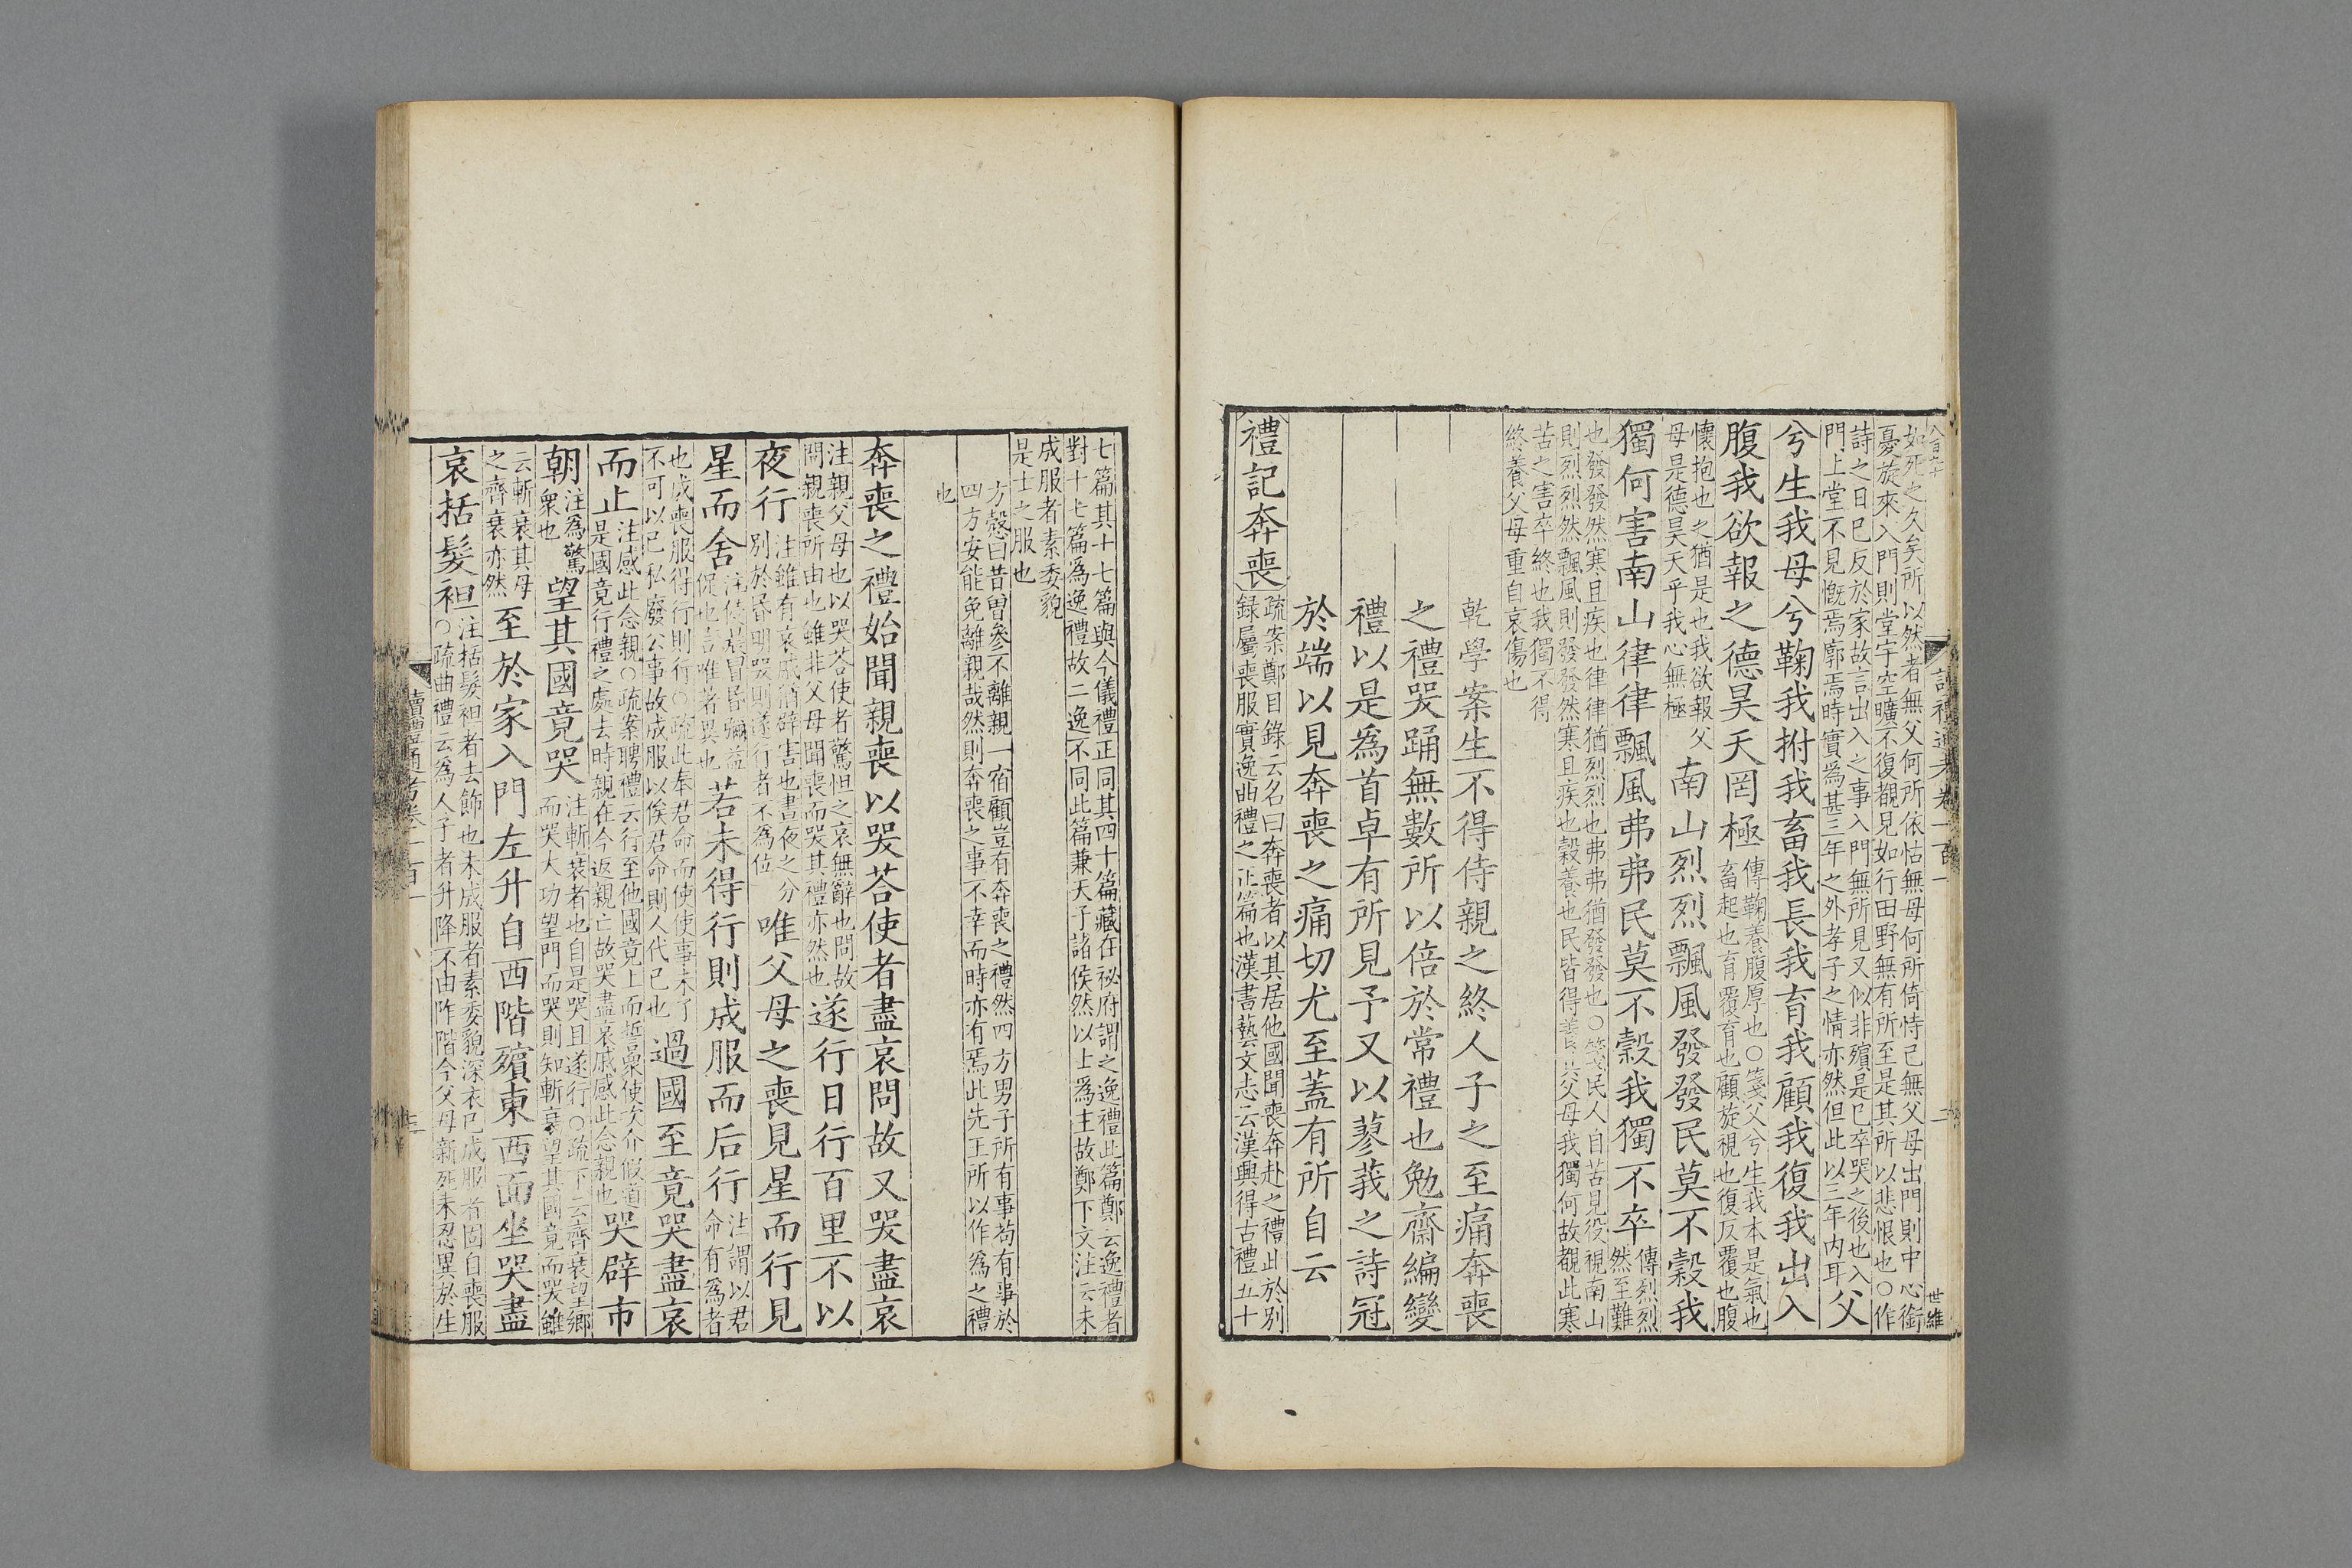 如死之久矣所以然者無父何所依怙無母何所倚恃已無父母出門則中心銜
憂旋來入門則堂宇空曠不復覩見如行田野無有所至是其所以悲恨也○作
詩之日已反於家故言出入之事入門無所見又似非殯是已卒哭之後也入
門上堂不見慨焉廓焉時實為甚三年之外孝子之情亦然但此以三年內耳
父
兮生我母兮鞠我拊我畜我長我育我顧我復我出入
腹我欲報之德昊天罔極
傳鞠養腹厚也○箋父兮生我本是氣也
畜起也育覆育也顧旋視也復反覆也腹
懷抱也之猶是也我欲報父
母是德昊天乎我心無極
南山烈烈飄風發發民莫不穀我
獨何害南山律律飄風弗弗民莫不穀我獨不卒
傳烈烈
然至難
也發發然寒且疾也律律猶烈烈也弗弗猶發發也○箋民人自苦見役視南山
則烈烈然飄風則發發然寒且疾也穀養也民皆得養其父母我獨何故覩此寒
苦之害卒終也我獨不得
終養父母重自哀傷也
乾學案生不得侍親之終人子之至痛奔喪
之禮哭踊無數所以倍於常禮也勉齋編變
禮以是為首卓有所見予又以蓼莪之詩冠
於端以見奔喪之痛切尤至蓋有所自云
禮記奔喪
疏案鄭目錄云名曰奔喪者以其居他國聞喪奔赴之禮此於別
錄屬喪服實逸曲禮之正篇也漢書藝文志云漢興得古禮五十
七篇其十七篇與今儀禮正同其四十篇藏在祕府謂之逸禮此篇鄭云逸禮者
對十七篇為逸禮故二逸不同此篇兼天子諸侯然以士為主故鄭下文注云未
成服者素委貌
是士之服也
方愨曰昔曾參不離親一宿顧豈有奔喪之禮然四方男子所有事苟有事於
四方安能免離親哉然則奔喪之事不幸而時亦有焉此先王所以作為之禮
也
奔喪之禮始聞親喪以哭荅使者盡哀問故又哭盡哀
注親父母也以哭荅使者驚怛之哀無辭也問故
問親喪所由也雖非父母聞喪而哭其禮亦然也
遂行日行百里不以
夜行
注雖有哀戚猶辟害也晝夜之分
別於昏明哭則遂行者不為位
唯父母之喪見星而行見
星而舍
注侵晨冒昏彌益
促也言唯著異也
若未得行則成服而后行
注謂以君
命有為者
也成喪服得行則行○疏此奉君命而使使事未了
不可以已私廢公事故成服以俟君命則人代已也
過國至竟哭盡哀
而止
注感此念親○疏案聘禮云行至他國竟上而誓眾使次介假道
是國竟行禮之處去時親在今返親亡故哭盡哀戚感此念親也
哭辟市
朝
注為驚
衆也
望其國竟哭
注斬衰者也自是哭且遂行○疏下云齊衰望鄉
而哭大功望門而哭則知斬衰望其國竟而哭雖
云斬衰其母
之齊衰亦然
至於家入門左升自西階殯東西面坐哭盡
哀括髮袒
注括髮袒者去飾也未成服者素委貌深衣已成服者固自喪服
○疏曲禮云為人子者升降不由阼階今父母新死未忍異於生
讀禮通考卷一百一